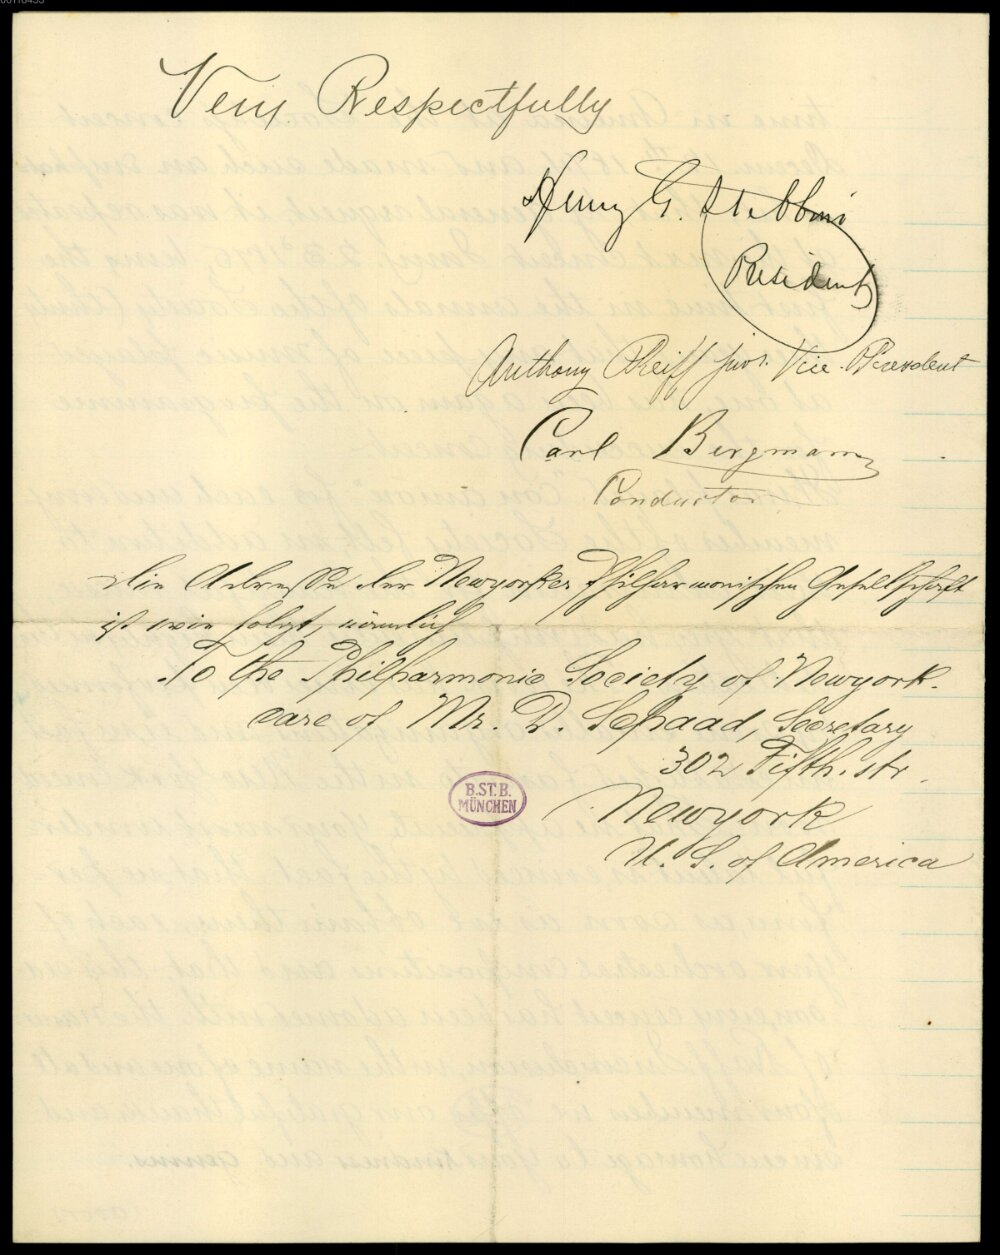 Very Respectfully
Henry G. Stebbins
President
Anthony Reiff Junr. Vice-President
Carl Bergmann
Conductor
Die Adresse der Newyorker Philharmonischen Gesellschaft
ist wie folgt, nämlich
To the Philharmonic Society of Newyork.
care of Mr. D. Schaad, Secretary
302 Fifth. str.
Newyork
U. S. of America
B.ST.B.
MÜNCHEN